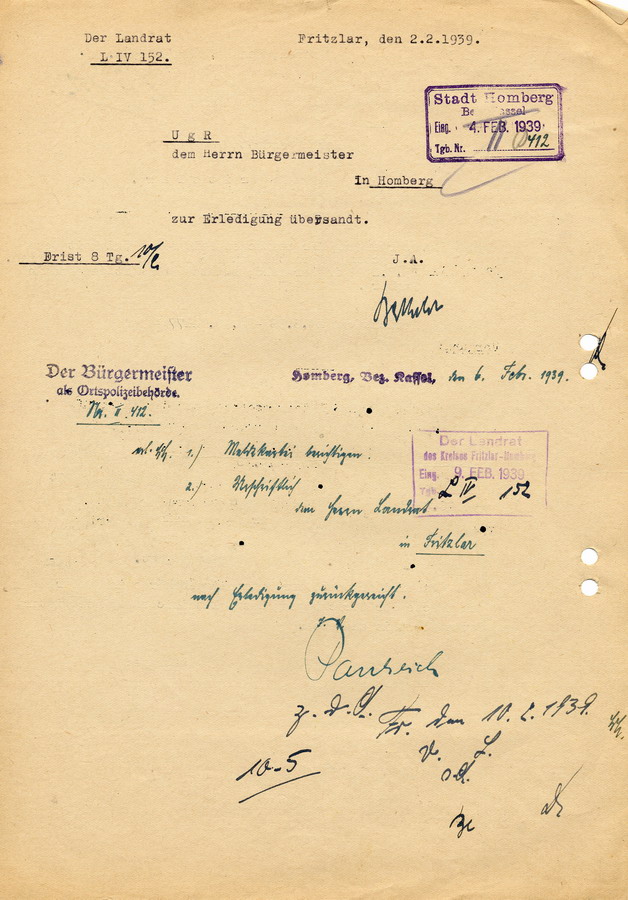 Der Landrat
L IV 152.
Fritzlar, den 2.2.1939.
Stadt Homberg
Eing. 4. FEB. 1939
Tgb. Nr. II 412
U g R
dem Herrn Bürgermeister
in Homberg
zur Erledigung übersandt.
Frist 8 Tg. 10/2
J.A.
Der Bürgermeister
als Ortspolizeibehörde.
Nr. II 412.
Homberg, Bez. Kassel, den 6. Febr. 1939.
1.) Meldekartei berichtigen.
2.) Urschriftlich
dem Herrn Landrat
in Fritzlar
nach Erledigung zurückgereicht.
Der Landrat
des Kreises Fritzlar-Homberg
Eing. 9. FEB. 1939
Tgb. L IV 152
z. d. A.
Fr. den 10. 2. 1939.
10-5